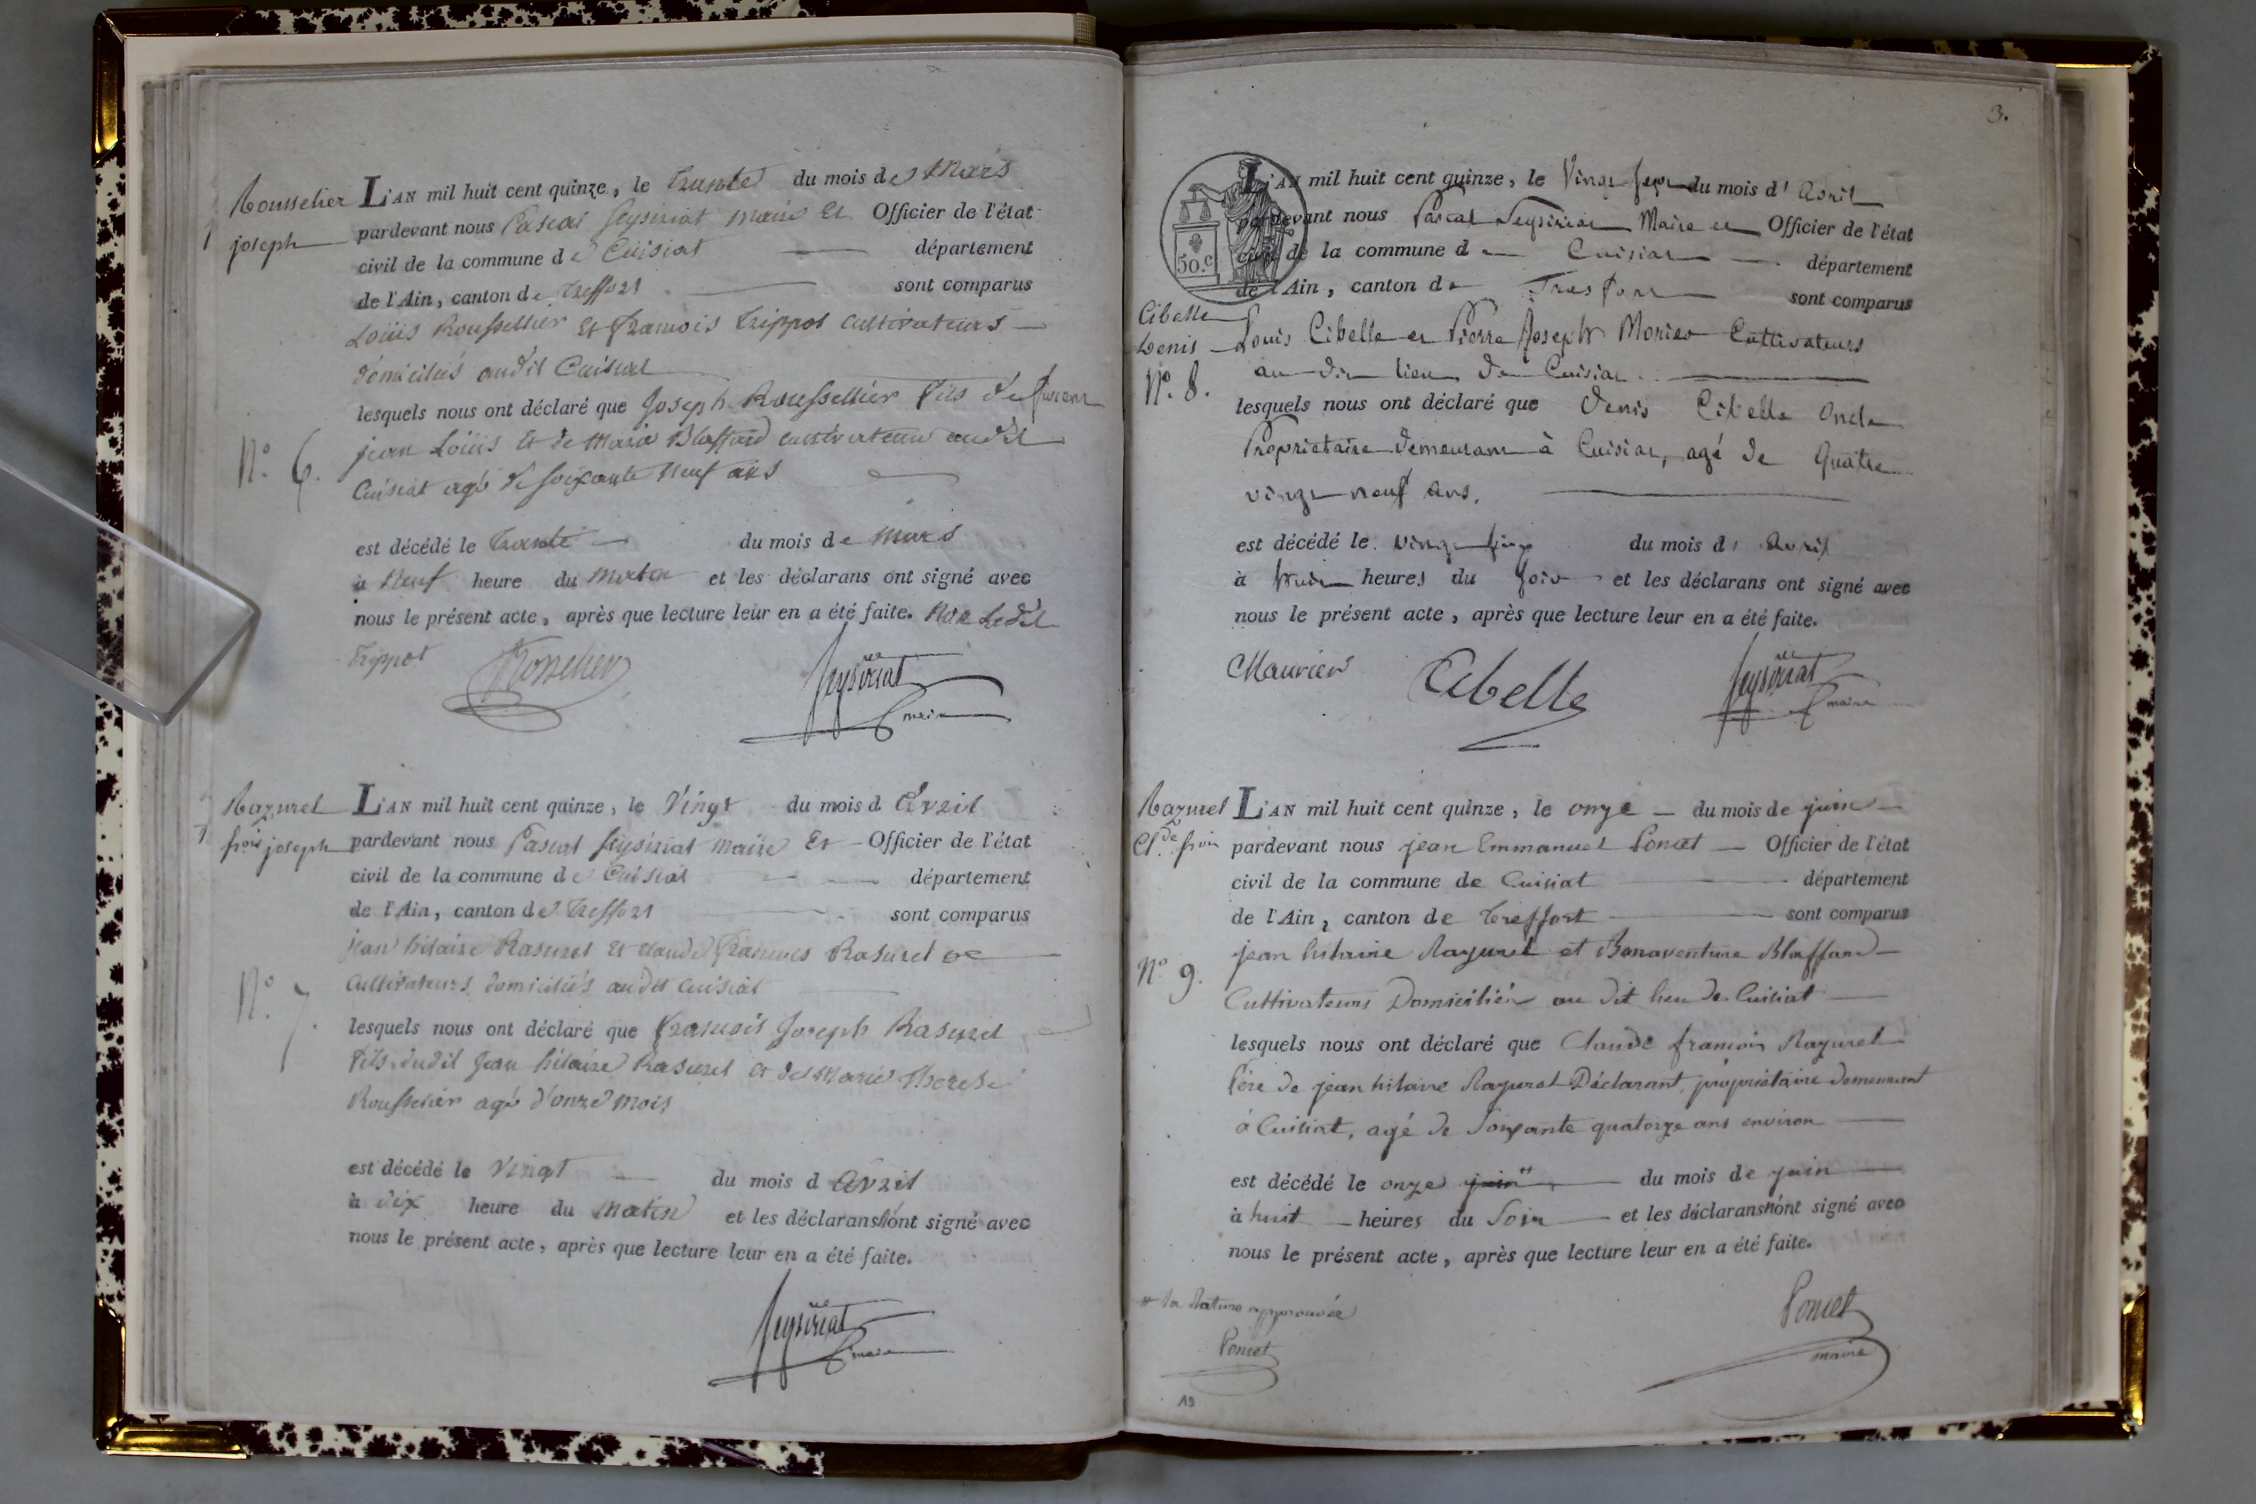 Rousselier
joseph
N.° 6.
L'AN mil huit cent quinze, le Trente du mois de Mars
pardevant nous Pascal Seysiriat maire Et Officier de l'état
civil de la commune de Cuisiat département
de l'Ain, canton de Treffort sont comparus
Loüis Rousselier Et francois Trippot cultivateurs
domiciliés audit Cuisiat
lesquels nous ont déclaré que Joseph Rousselier fils de
jean Loüis Et de Marie Blaffard cultivateur audit
Cuisiat agé de soixante neuf ans
est décédé le Trante du mois de Mars
à Neuf heure du Matin et les déclarans ont signé avec
nous le présent acte, après que lecture leur en a été faite. Non Ledit
Trippot Rousselier Seysiriat
maire
Razurel
fr.ois joseph
N.° 7.
L'AN mil huit cent quinze, le Vingt du mois d Avril
pardevant nous Pascal Seysiriat maire Et Officier de l'état
civil de la commune de Cuisiat département
de l'Ain, canton de Treffort sont comparus
jean hilaire Rasurel et claude francois Rasurel
cultivateurs domiciliés audit Cuisiat
lesquels nous ont déclaré que francois Joseph Rasurel
fils dudit Jean hilaire Rasurel et de Marie Therese
Rousselier agé d'onze mois
est décédé le Vingt du mois d Avril
à dix heure du Matin et les déclarans n'ont signé avec
nous le présent acte, après que lecture leur en a été faite.
Seysiriat
maire
3.
50.c
L'AN mil huit cent quinze, le Vingt Sept du mois d' Avril
pardevant nous Pascal Seysiriat Maire et Officier de l'état
civil de la commune d Cuisiat département
de l'Ain, canton de Tresfort sont comparus
Cibelle
Denis
N.° 8.
Louis Cibelle et Pierre Joseph Morier Cultivateurs
au dit lieu de Cuisiat
lesquels nous ont déclaré que Denis Cibelle Oncle
Propriétaire demeurant à Cuisiat, agé de Quatre
vingt neuf ans.
est décédé le vingt du mois d' Avril
à heures du soir et les déclarans ont signé avec
nous le présent acte, après que lecture leur en a été faite.
Maurier Cibelle Seysiriat
maire
Razurel
Cl.de fr.ois
N.° 9.
L'AN mil huit cent quinze, le onze du mois de juin
pardevant nous jean Emmanuel Poncet Officier de l'état
civil de la commune de Cuisiat département
de l'Ain, canton de Treffort sont comparus
jean hilaire Razurel et Bonaventure Blaffard
Cultivateurs Domiciliés au dit lieu de Cuisiat
lesquels nous ont déclaré que Claude francois Razurel
Père de jean hilaire Razurel Déclarant, propriétaire demeurant
à Cuisiat, agé de Soixante quatorze ans environ
est décédé le onze juin du mois de juin
à huit heures du Soir et les déclarans n'ont signé avec
nous le présent acte, après que lecture leur en a été faite.
la Rature approuvée
Poncet
Poncet
maire
19